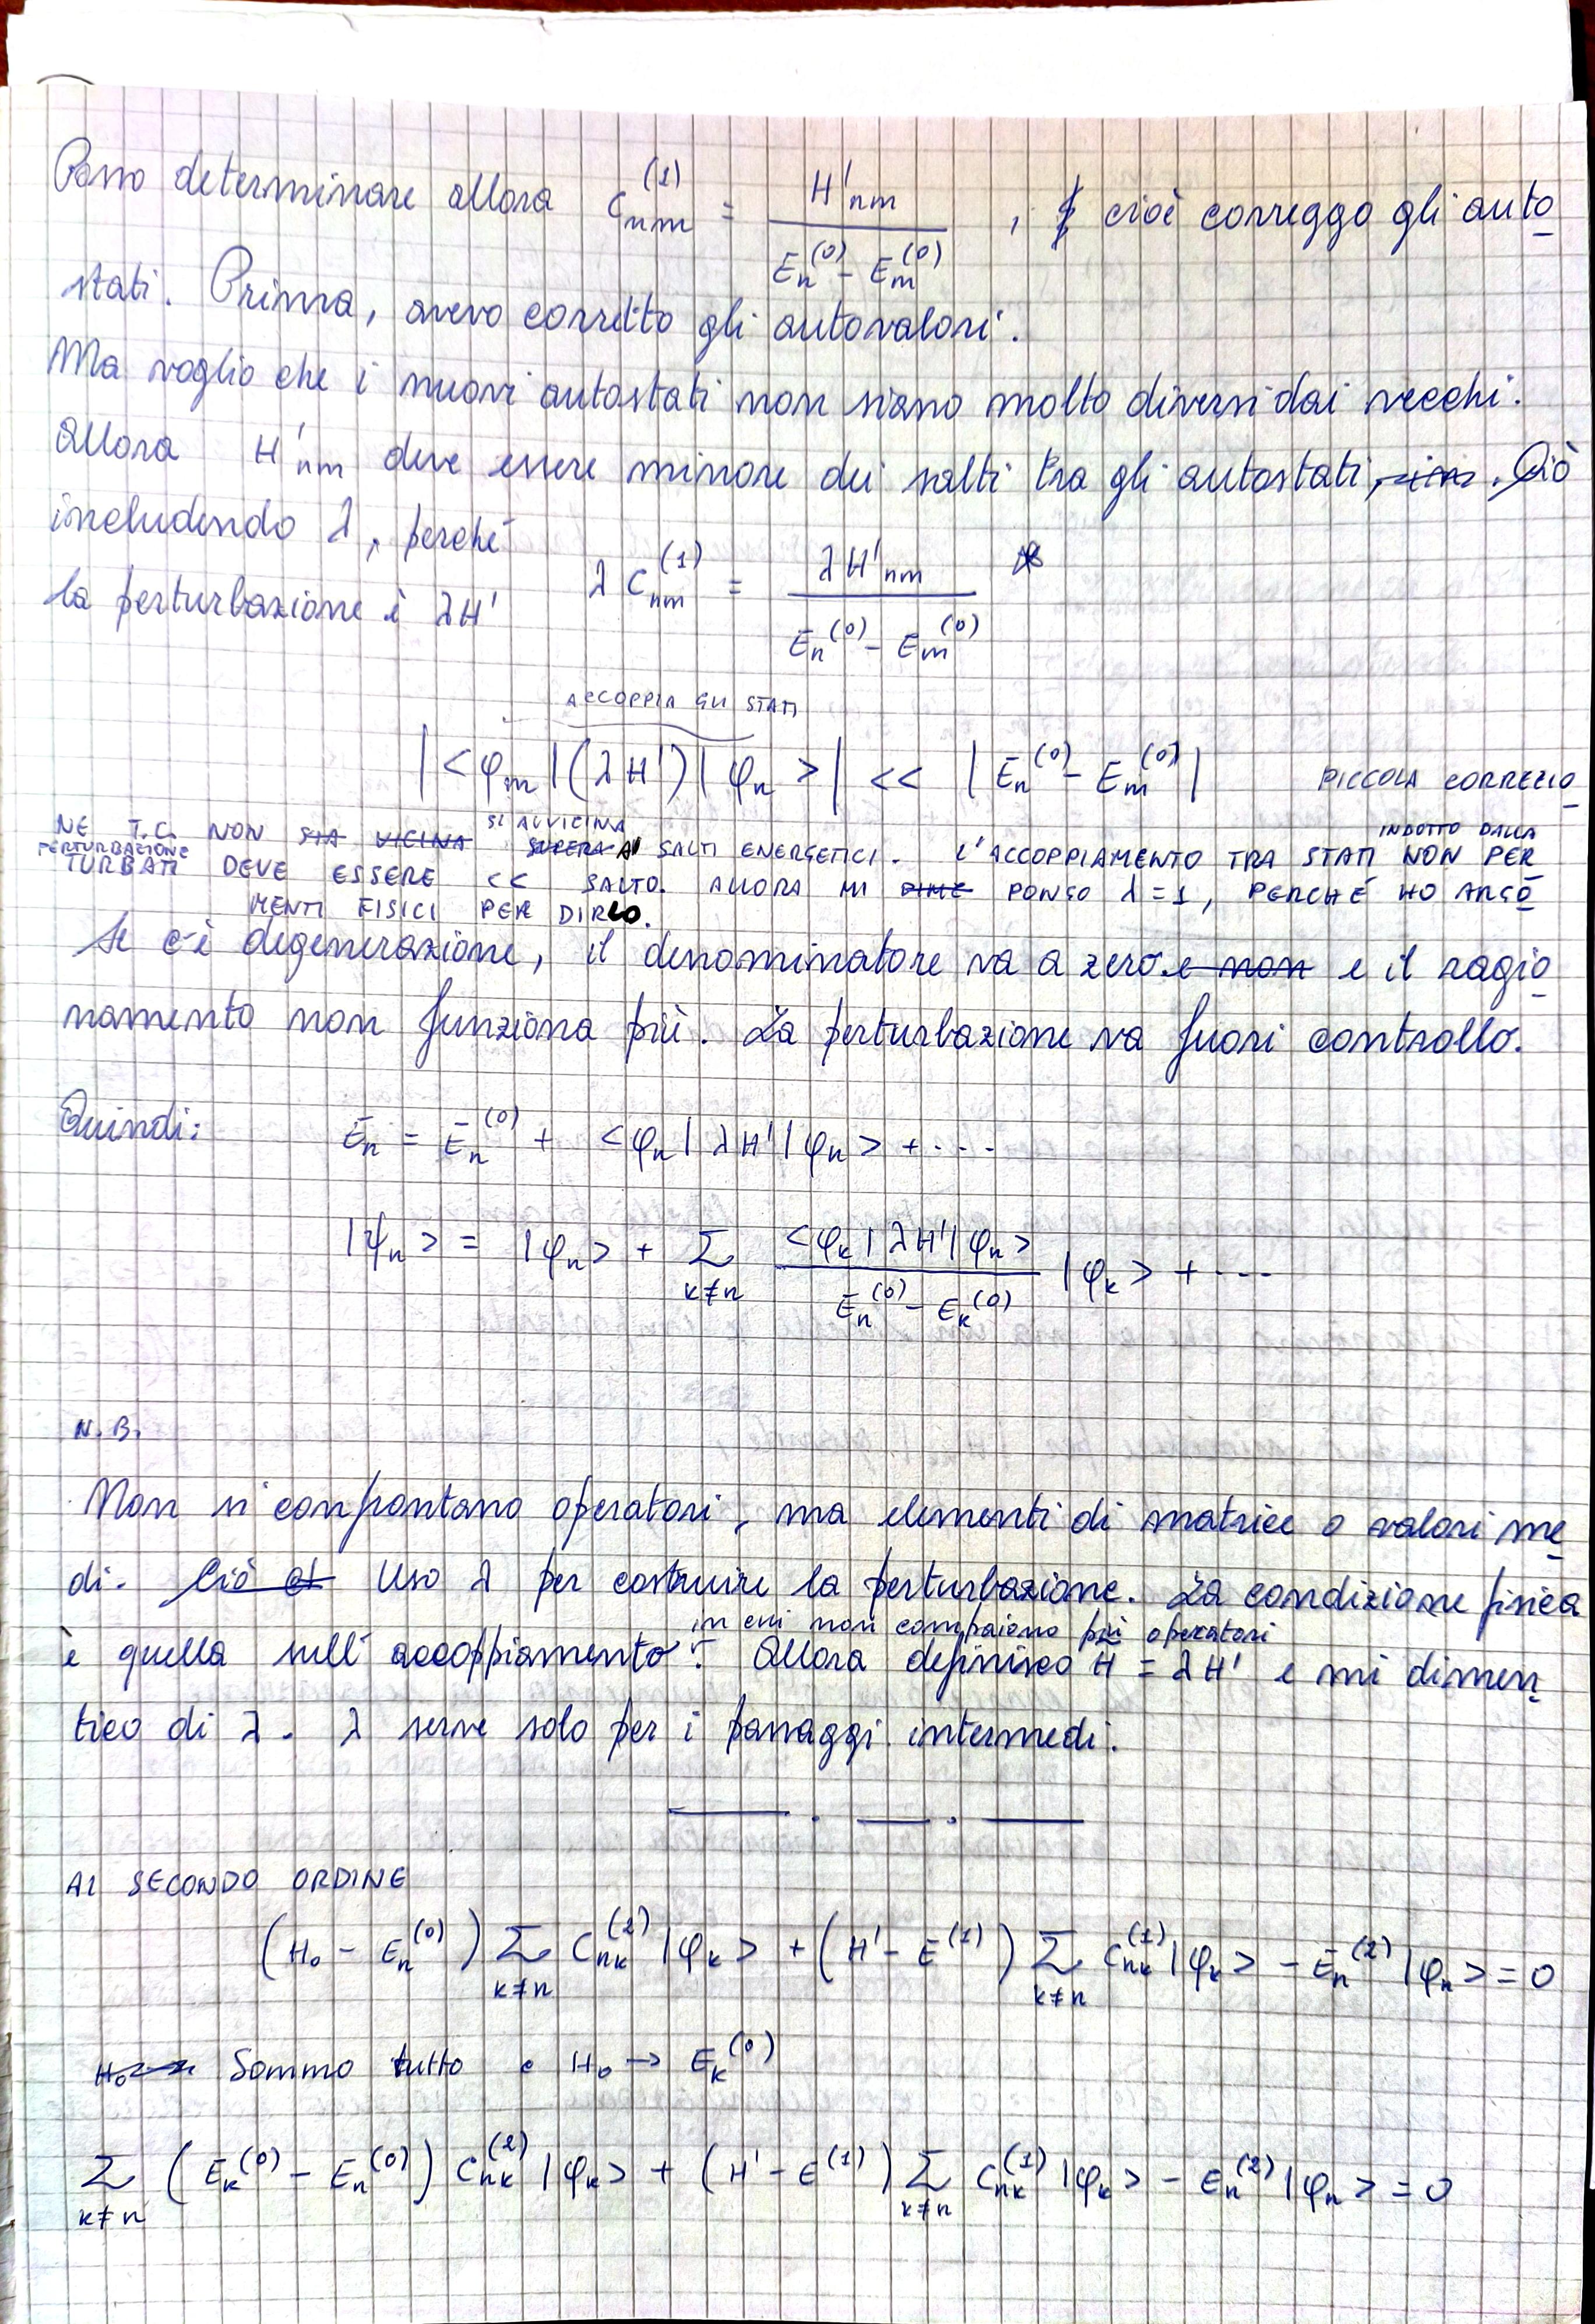 Posso determinare allora C_{nm}^{(1)} = H'_{nm} / (E_n^{(0)} - E_m^{(0)}) , cioè correggo gli auto
stati. Prima, avevo corretto gli autovalori.
Ma voglio che i nuovi autostati non siano molto diversi dai vecchi.
Allora H'_{nm} deve essere minore dei salti tra gli autostati, . Ciò
includendo λ, perché
la perturbazione è λH'
λ C_{nm}^{(1)} = λH'_{nm} / (E_n^{(0)} - E_m^{(0)}) *
ACCOPPIA GLI STATI
|<φ_m|(λH')|φ_n>| << |E_n^{(0)} - E_m^{(0)}| PICCOLA CORREZIO
NE T.C. NON STA VICINA SUPERA SI AVVICINA AI SALTI ENERGETICI. L'ACCOPPIAMENTO TRA STATI NON PER
INDOTTO DALLA
PERTURBAZIONE
TURBATI DEVE ESSERE << SALTO. ALLORA MI DIME PONGO λ=1, PERCHÉ HO ARGO
MENTI FISICI PER DIRLO.
Se c'è degenerazione, il denominatore va a zero e non e il ragio
namento non funziona più. La perturbazione va fuori controllo.
Quindi:
E_n = E_n^{(0)} + <φ_n|λH'|φ_n> + ...
|ψ_n> = |φ_n> + Σ_{k≠n} <φ_k|λH'|φ_n> / (E_n^{(0)} - E_k^{(0)}) |φ_k> + ---
N.B.
Non si confrontano operatori, ma elementi di matrice o valori me
di. Ciò Uso λ per costruire la perturbazione. La condizione fisica
in cui non compaiono più operatori
è quella sull'accoppiamento. Allora definisco H̃ = λH' e mi dimen
tico di λ. λ serve solo per i passaggi intermedi.
AL SECONDO ORDINE
(H_0 - E_n^{(0)}) Σ_{k≠n} C_{nk}^{(2)} |φ_k> + (H' - E^{(1)}) Σ_{k≠n} C_{nk}^{(1)} |φ_k> - E_n^{(2)} |φ_n> = 0
H_0 → Sommo tutto e H_0 → E_k^{(0)}
Σ_{k≠n} (E_k^{(0)} - E_n^{(0)}) C_{nk}^{(2)} |φ_k> + (H' - E^{(1)}) Σ_{k≠n} C_{nk}^{(1)} |φ_k> - E_n^{(2)} |φ_n> = 0